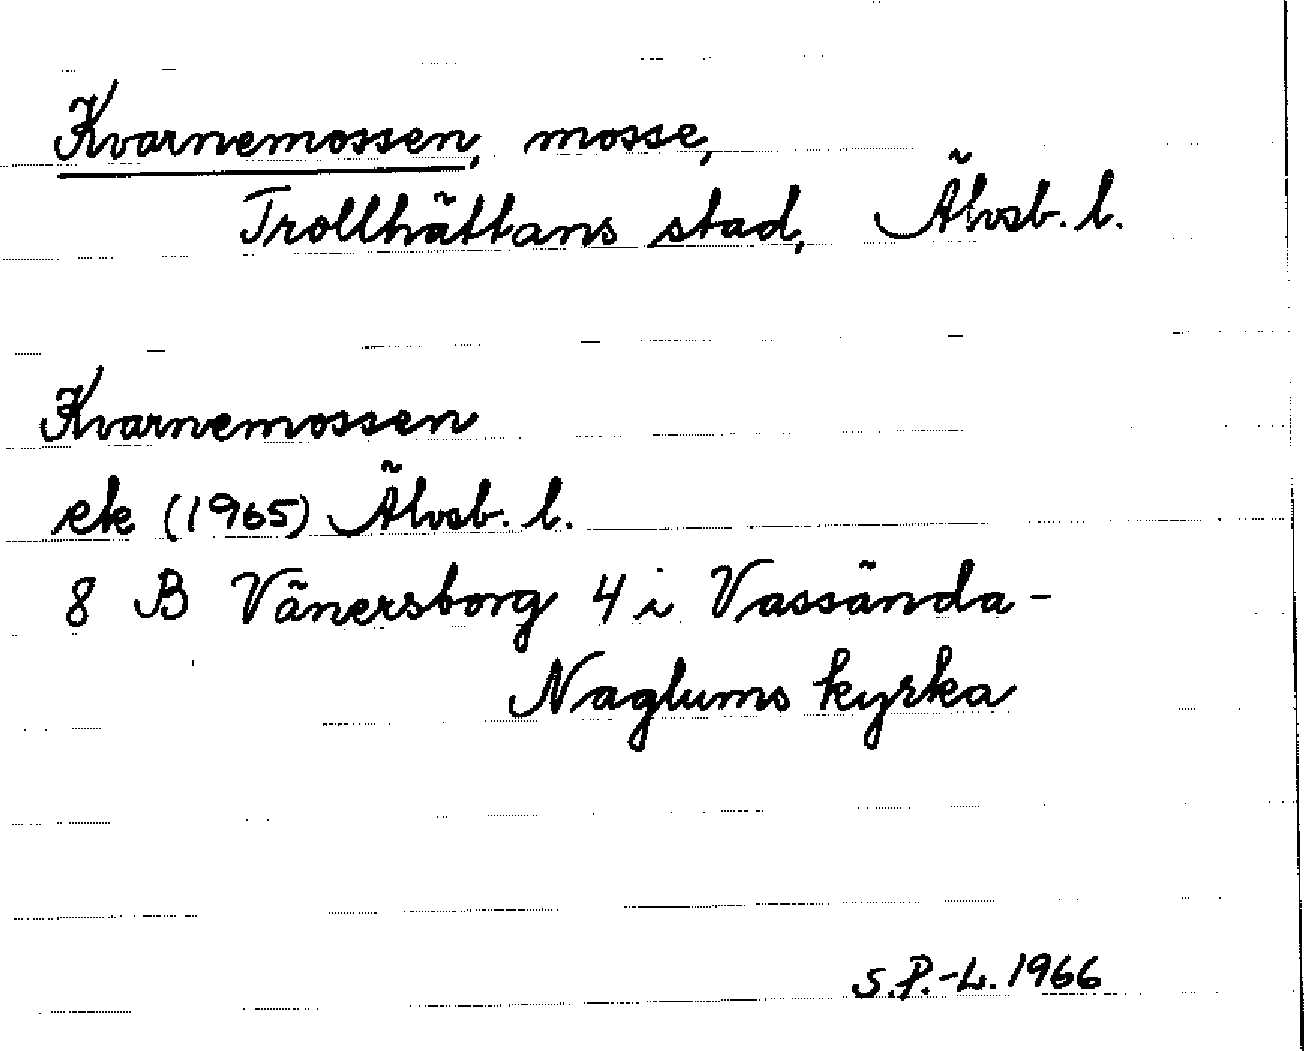 Kvarnemossen, mosse,
Trollhättans stad, Älvsb. l.
Kvarnemossen
ek (1965) Älvsb. l.
8 B Vänersborg 4 i Vassända-
Naglums kyrka
S.P.-L. 1966